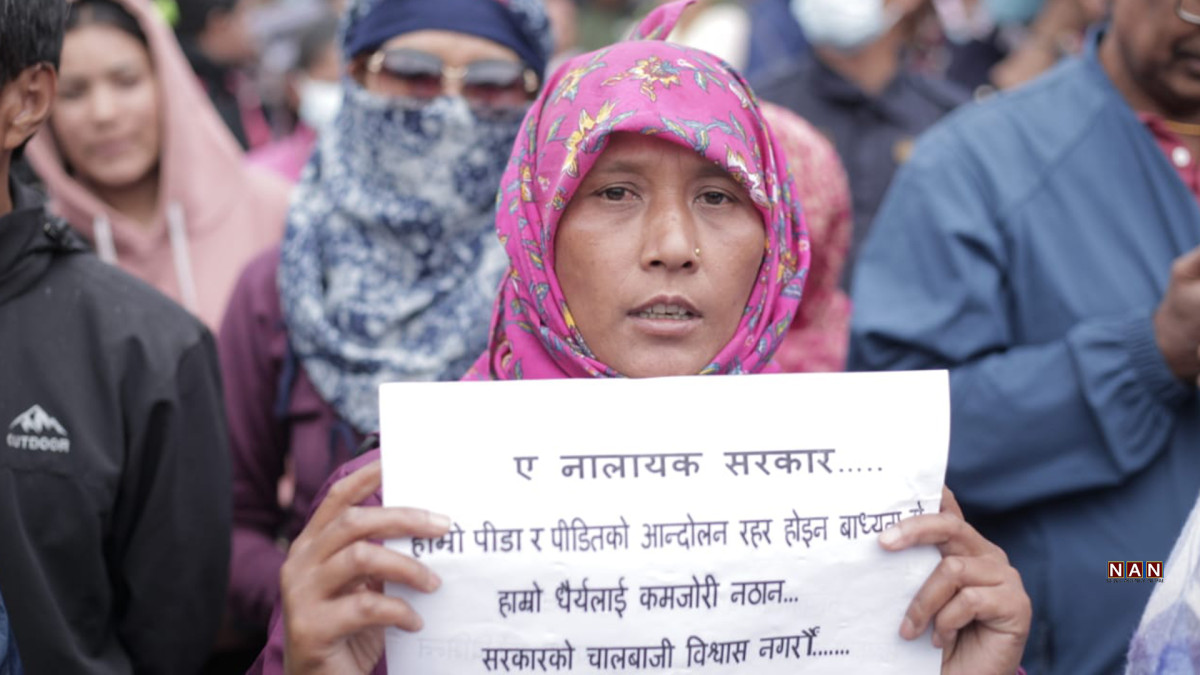 ए नालायक सरकार.....
हाम्रो पीडा र पीडितको आन्दोलन रहर होइन बाध्यता
हाम्रो धैर्यलाई कमजोरी नठान...
सरकारको चालबाजी विश्वास नगरौं.......
OUTDOOR
NAN